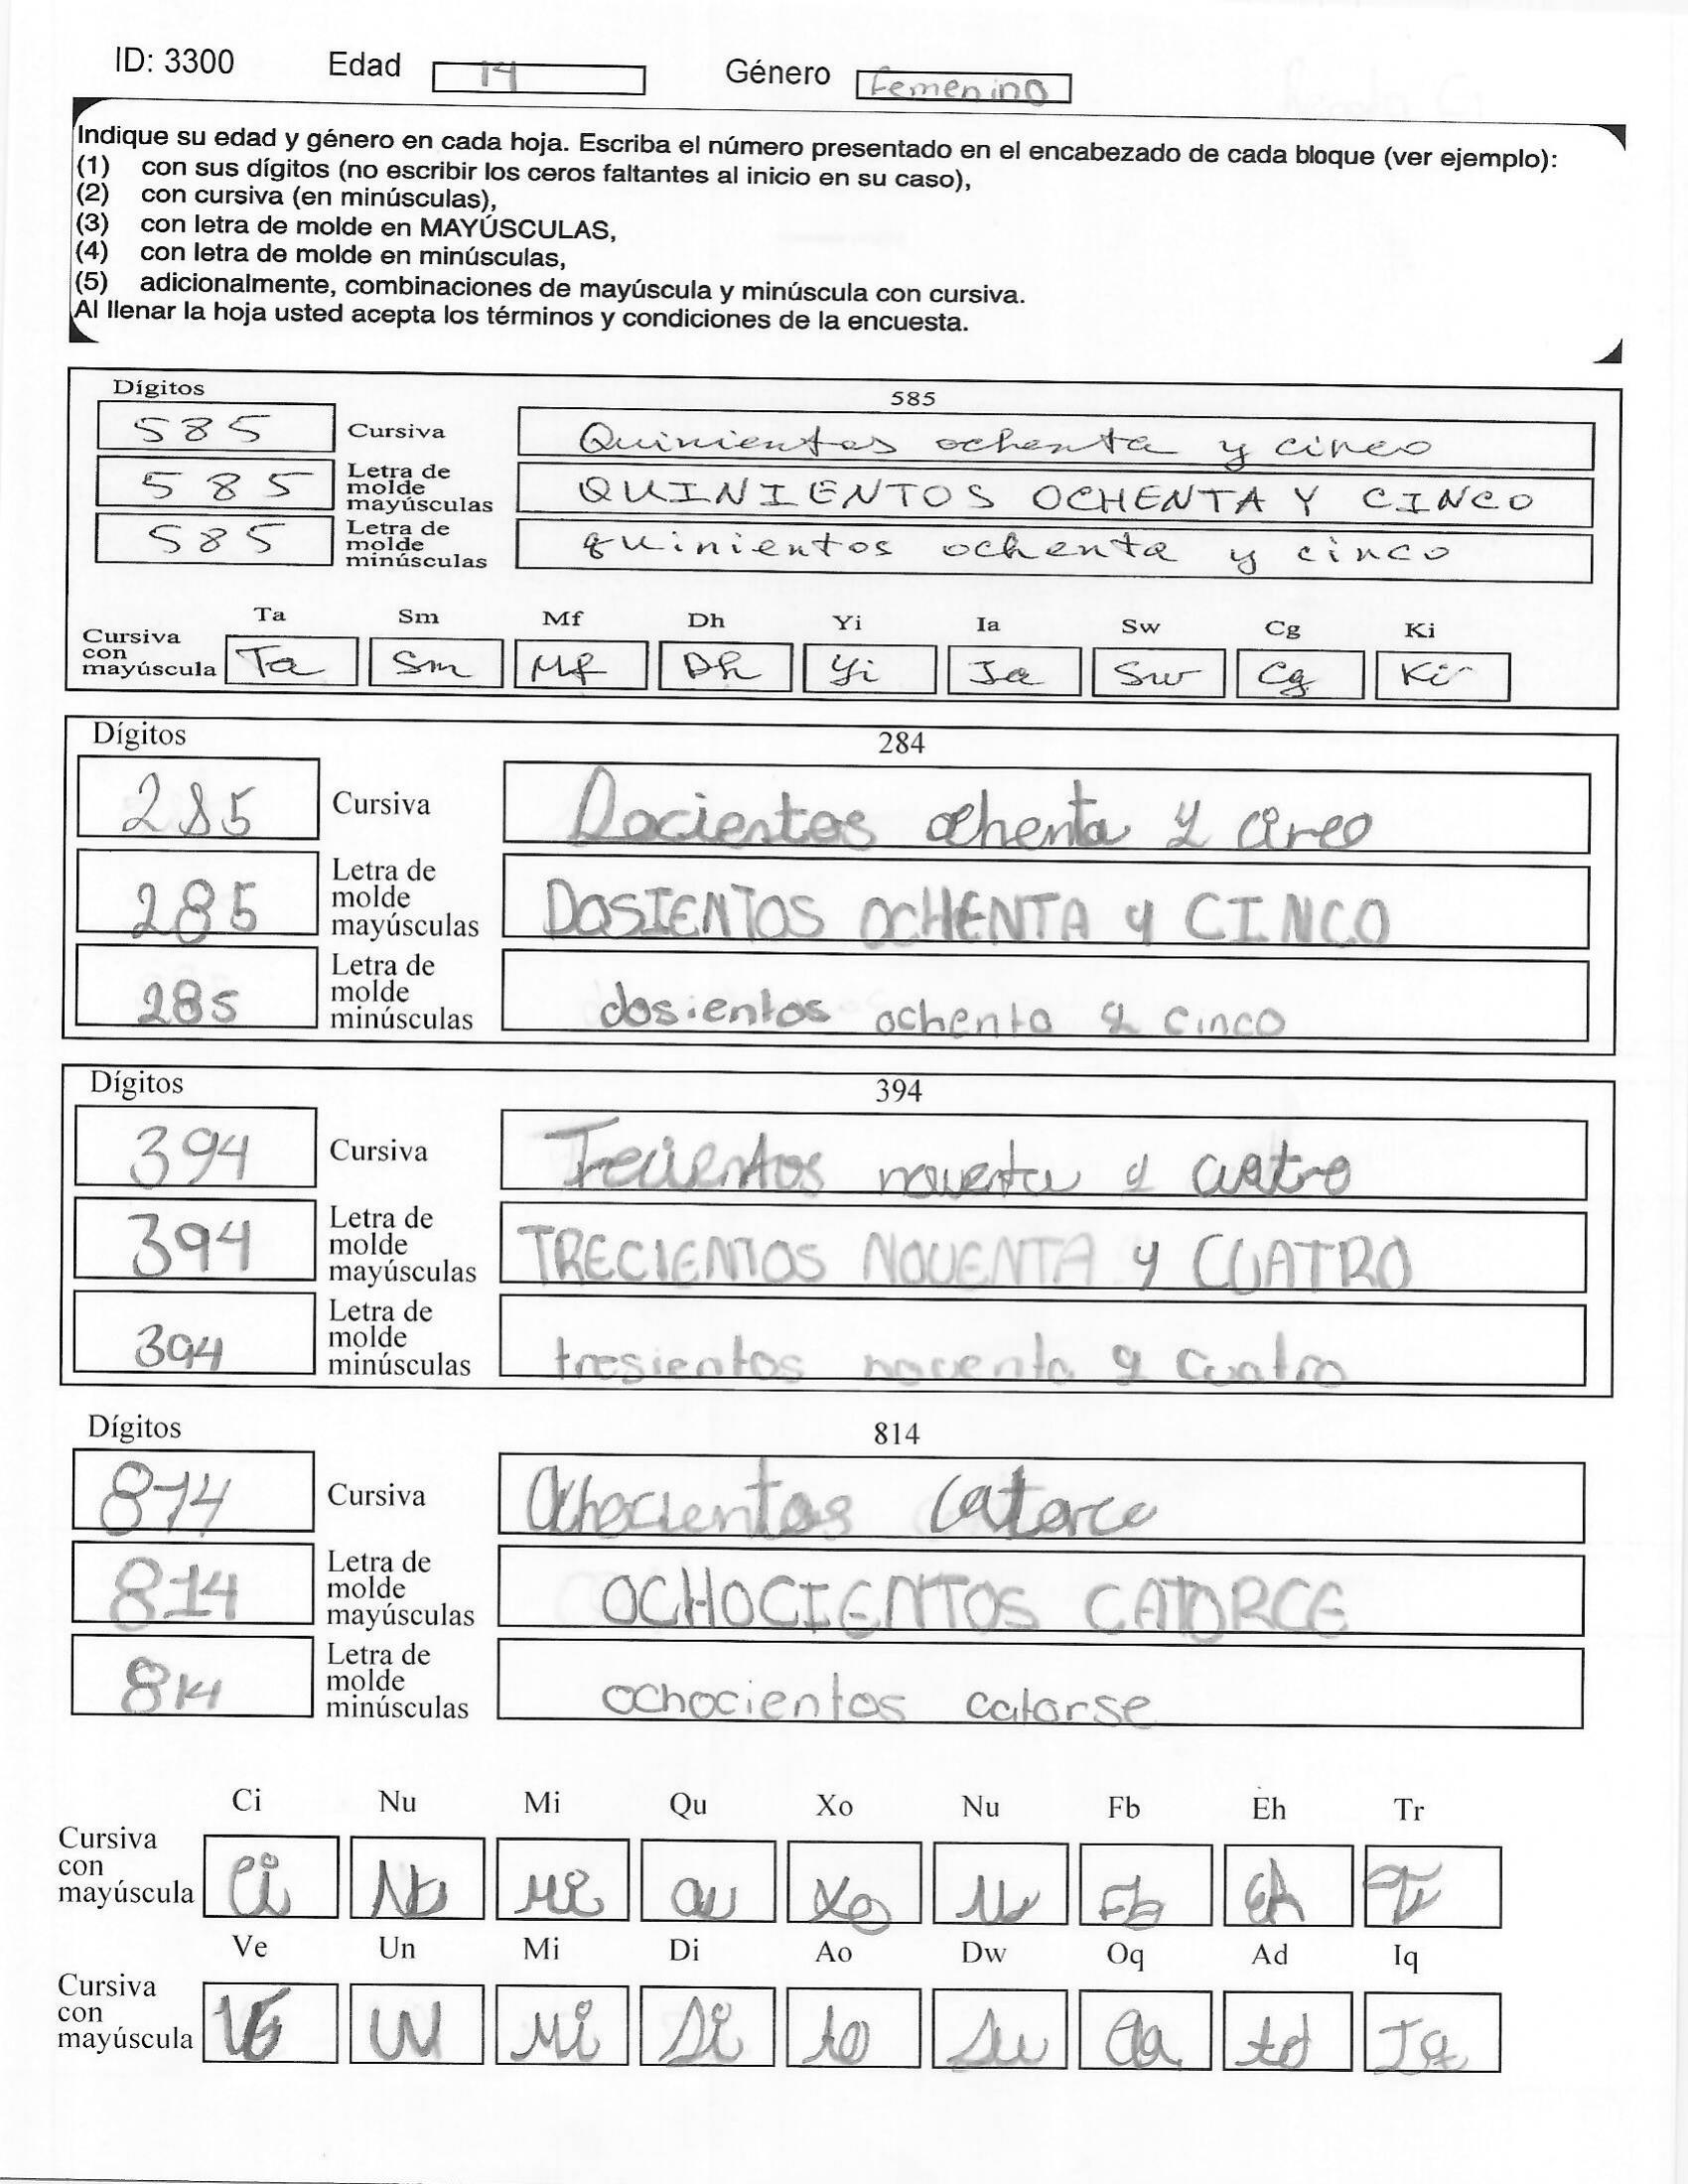 ID: 3300 Edad 14 Género femenino
Indique su edad y género en cada hoja. Escriba el número presentado en el encabezado de cada bloque (ver ejemplo):
(1) con sus dígitos (no escribir los ceros faltantes al inicio en su caso),
(2) con cursiva (en minúsculas),
(3) con letra de molde en MAYÚSCULAS,
(4) con letra de molde en minúsculas,
(5) adicionalmente, combinaciones de mayúscula y minúscula con cursiva.
Al llenar la hoja usted acepta los términos y condiciones de la encuesta.
Dígitos 585
585 Cursiva Quinientos ochenta y cinco
585 Letra de molde mayúsculas QUINIENTOS OCHENTA Y CINCO
585 Letra de molde minúsculas quinientos ochenta y cinco
Ta Sm Mf Dh Yi Ia Sw Cg Ki
Cursiva con mayúscula Ta Sm Mf Dh Yi Ia Sw Cg Ki
Dígitos 284
285 Cursiva Docientos ochenta y cinco
285 Letra de molde mayúsculas DOSIENTOS OCHENTA y CINCO
285 Letra de molde minúsculas dosientos ochenta y cinco
Dígitos 394
394 Cursiva Trecientos noventa y cuatro
394 Letra de molde mayúsculas TRECIENTOS NOVENTA y CUATRO
394 Letra de molde minúsculas tresientos noventa y cuatro
Dígitos 814
814 Cursiva Ochocientos catorce
814 Letra de molde mayúsculas OCHOCIENTOS CATORCE
814 Letra de molde minúsculas ochocientos catorse
Ci Nu Mi Qu Xo Nu Fb Eh Tr
Cursiva con mayúscula Ci Nu Mi Qu Xo Nu Fb Eh Tr
Ve Un Mi Di Ao Dw Oq Ad Iq
Cursiva con mayúscula Ve Un Mi Di Ao Dw Oq Ad Iq